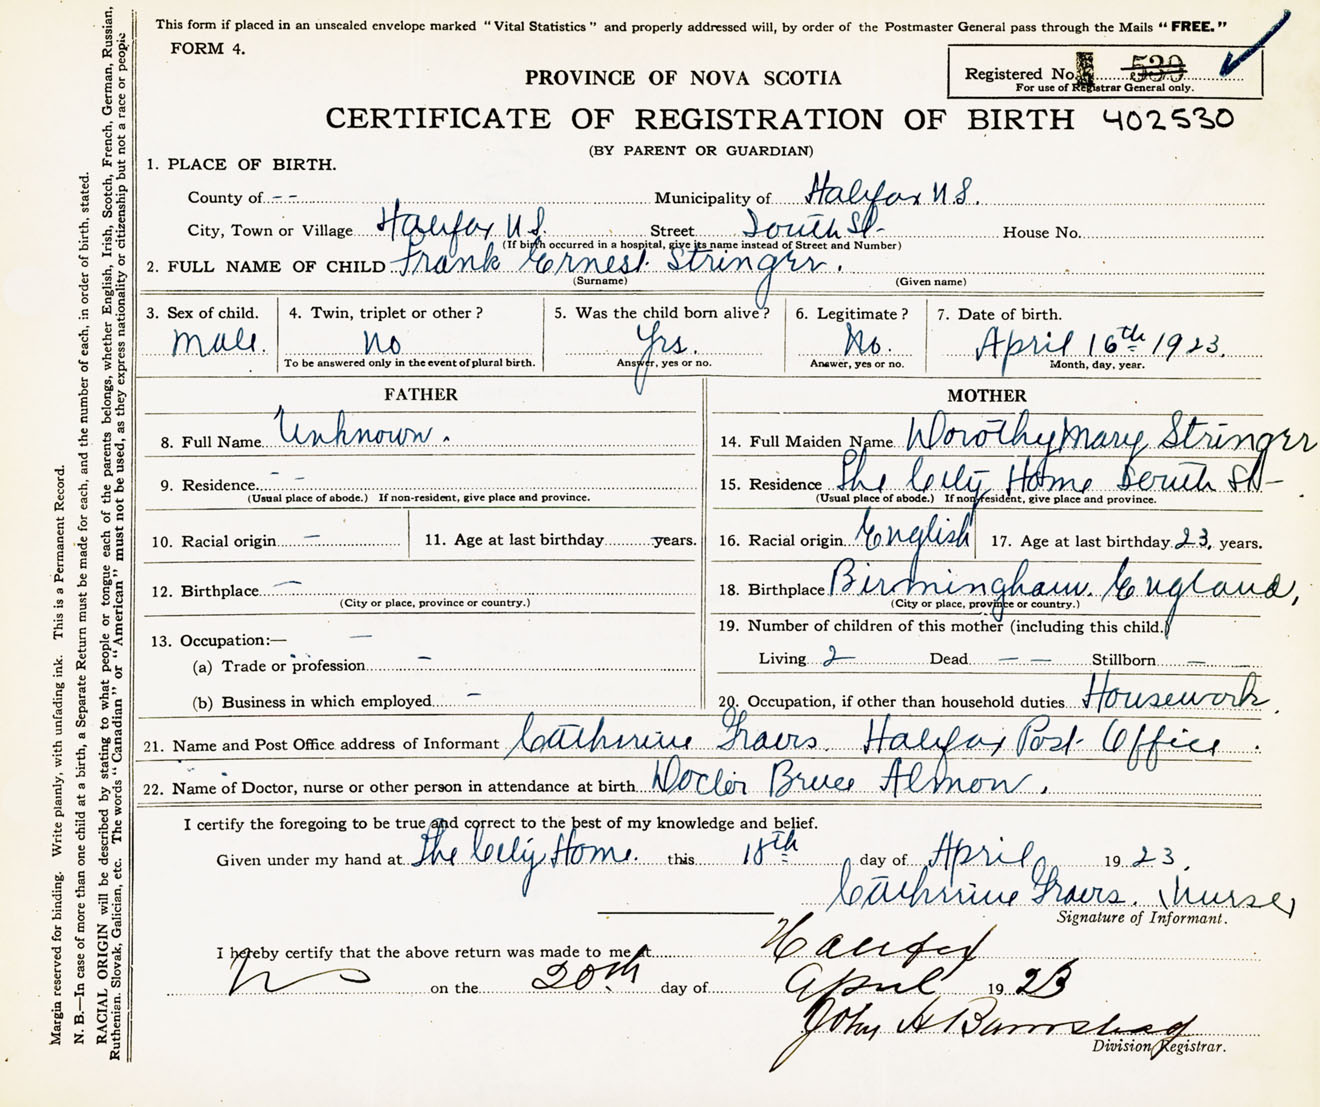 This form if placed in an unsealed envelope marked "Vital Statistics" and properly addressed will, by order of the Postmaster General pass through the Mails "FREE."
FORM 4.
Registered No. 530
For use of Registrar General only.
PROVINCE OF NOVA SCOTIA
CERTIFICATE OF REGISTRATION OF BIRTH 402530
(BY PARENT OR GUARDIAN)
1. PLACE OF BIRTH.
County of - - Municipality of Halifax N.S.
City, Town or Village Halifax N.S. Street South St- House No.
(If birth occurred in a hospital, give its name instead of Street and Number)
2. FULL NAME OF CHILD Frank Ernest Stringer.
(Surname) (Given name)
3. Sex of child. 4. Twin, triplet or other? 5. Was the child born alive? 6. Legitimate? 7. Date of birth.
Male. No Yes. No. April 16th 1923.
To be answered only in the event of plural birth. Answer, yes or no. Answer, yes or no. Month, day, year.
FATHER MOTHER
8. Full Name Unknown. 14. Full Maiden Name Dorothy Mary Stringer
9. Residence - 15. Residence The City Home South St-
(Usual place of abode.) If non-resident, give place and province. (Usual place of abode.) If non-resident, give place and province.
10. Racial origin - 11. Age at last birthday years. 16. Racial origin English 17. Age at last birthday 23, years.
12. Birthplace - 18. Birthplace Birmingham. England,
(City or place, province or country.) (City or place, province or country.)
13. Occupation:— - 19. Number of children of this mother (including this child.)
(a) Trade or profession - Living 2 Dead - - Stillborn -
(b) Business in which employed - 20. Occupation, if other than household duties Housework.
21. Name and Post Office address of Informant Catherine Halifax Post Office.
22. Name of Doctor, nurse or other person in attendance at birth Doctor Bruce Almon.
I certify the foregoing to be true and correct to the best of my knowledge and belief.
Given under my hand at The City Home. this 18th day of April 1923.
Catherine Nurse
Signature of Informant.
I hereby certify that the above return was made to me at Halifax
N S on the 20th day of April 1923
John A Barnstead
Division Registrar.
Margin reserved for binding. Write plainly, with unfading ink. This is a Permanent Record.
N. B.—In case of more than one child at a birth, a Separate Return must be made for each, and the number of each, in order of birth, stated.
RACIAL ORIGIN will be described by stating to what people or tongue each of the parents belongs, whether English, Irish, Scotch, French, German, Russian,
Ruthenian, Slovak, Galician, etc. The words "Canadian" or "American" must not be used, as they express nationality or citizenship but not a race or people